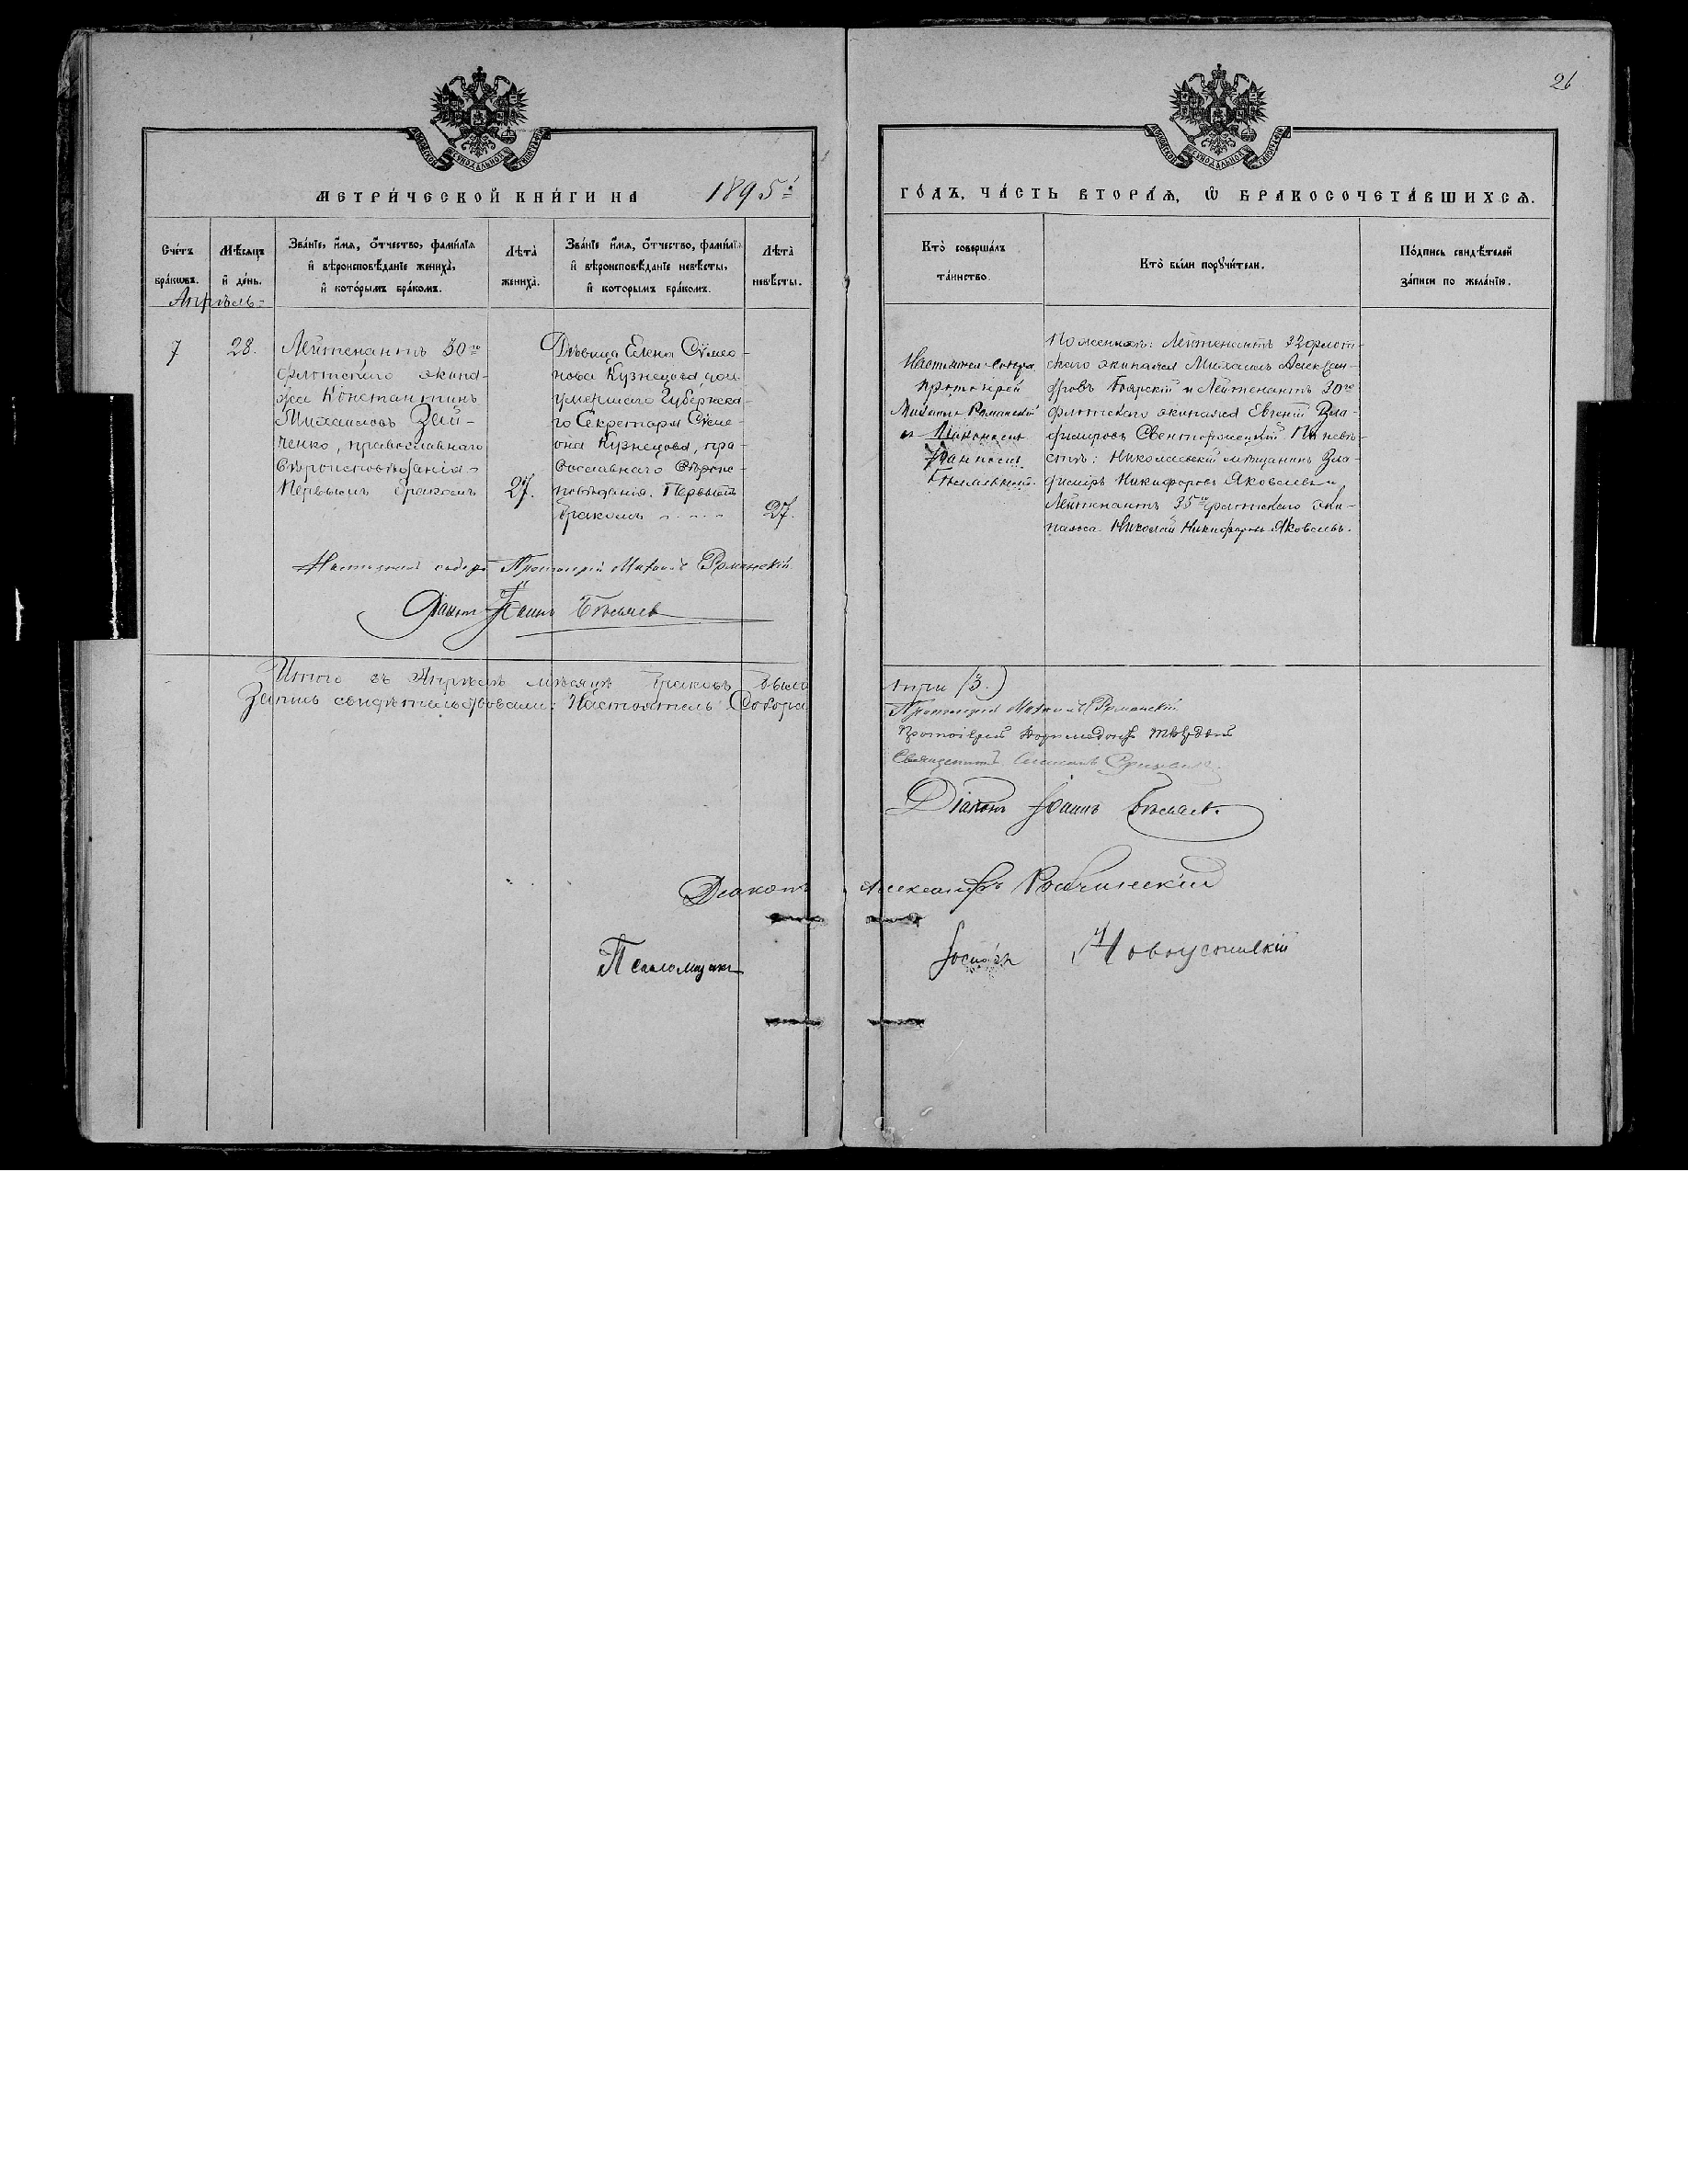 26
МЕТРИ́ЧЕСКОЙ КНИ́ГИ НА 1895й
ГО́ДЪ, ЧА́СТЬ ВТОРА́Ѧ, Ѡ БРАКОСОЧЕТА́ВШИХСѦ.
Сче́тъ бра́кωвъ.
Мѣ́сѧцъ и҆ де́нь.
Зва́нїе, и҆́мѧ, ѻ҆́тчество, фамі́лїѧ
и҆ вѣроисповѣ́данїе жениха̀,
и҆ кото́рымъ бра́комъ.
Лѣ́та̀ жениха̀.
Зва́нїе и҆́мѧ, ѻ҆́тчество, фамі́лїѧ
и҆ вѣроисповѣ́данїе невѣ́сты,
и҆ которымъ бра́комъ.
Лѣ́та̀ невѣ́сты.
Кто̀ соверша́лъ
та́инство.
Кто̀ бы́ли порꙋчи́тели.
По́дпись свидѣ́телей
за́писи по жела́нїю.
Апрѣль
7
28.
Лейтенантъ 30го
флотскаго экипа-
жа Константинъ
Михаиловъ Зай-
ченко, православнаго
вѣроисповѣданія
Первымъ бракомъ
27.
Дѣвица Елена Сѵмео-
нова Кузнецова, дочь
умершаго Губернска-
го Секретаря Сѵме-
она Кузнецова, пра-
вославнаго вѣроис-
повѣданія. Первымъ
бракомъ
27.
Настоятель Собора
Протоіерей
Михаилъ Романскій
съ Діакономъ
Іоанномъ
По женихѣ: Лейтенантъ 32 флот-
скаго экипажа Михаилъ Алексан-
дровъ Боярскій и Лейтенантъ 30го
флотскаго экипажа Евгеній Вла-
диміровъ Свенторжецкій По невѣ-
стѣ: Николаевскій мѣщанинъ Вла-
диміръ Никифоровъ Яковлевъ и
Лейтенантъ 35го флотскаго эки-
пажа Николай Никифоровъ Яковлевъ.
Настоятель собора Протоіерей Михаилъ Романскій
Діаконъ Іоаннъ
Итого въ Апрѣлѣ мѣсяцѣ браковъ было
три (3.)
Запись свидѣтельствовали: Настоятель Собора
Протоіерей Михаилъ Романскій
Протоіерей
Священникъ
Діаконъ Іоаннъ
Діаконъ Александръ
Псаломщикъ Іосифъ